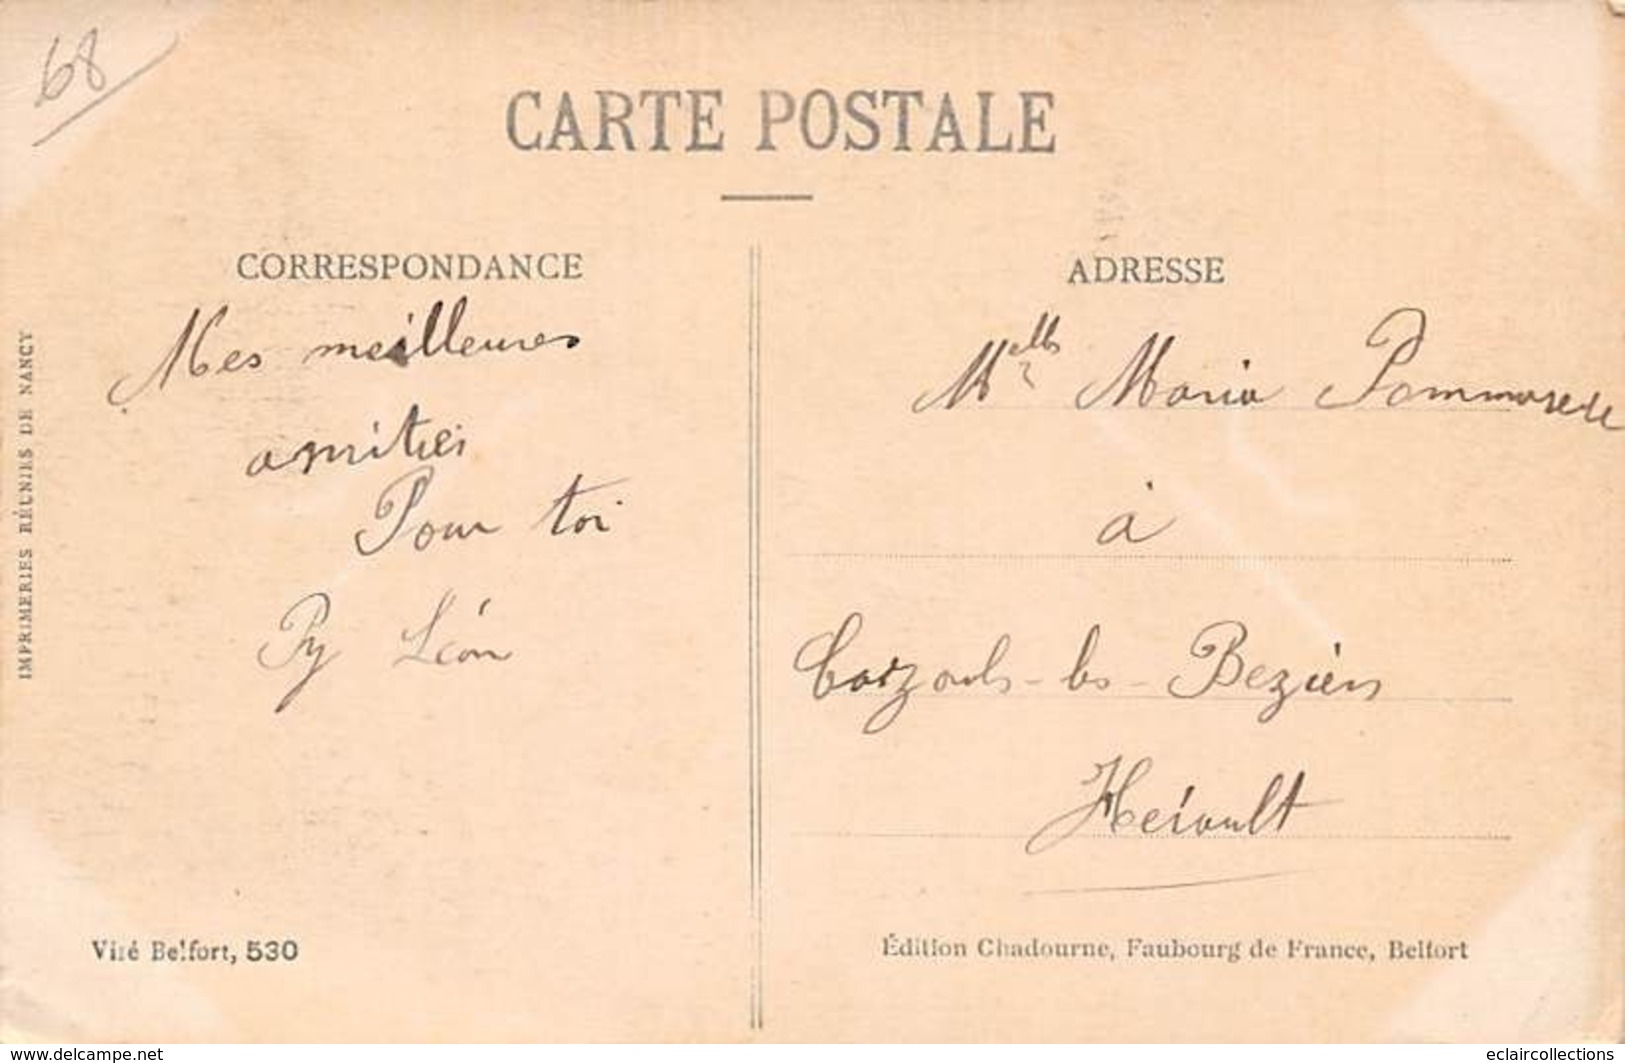 68
CARTE POSTALE
CORRESPONDANCE
Mes meilleures
amitiés
Pour toi
Py Léon
ADRESSE
Melle Maria Pommarede
à
Cazouls-les-Beziers
Herault
IMPRIMERIES RÉUNIES DE NANCY
Visé Belfort, 530
Édition Chadourne, Faubourg de France, Belfort
www.delcampe.net
eclaircollections